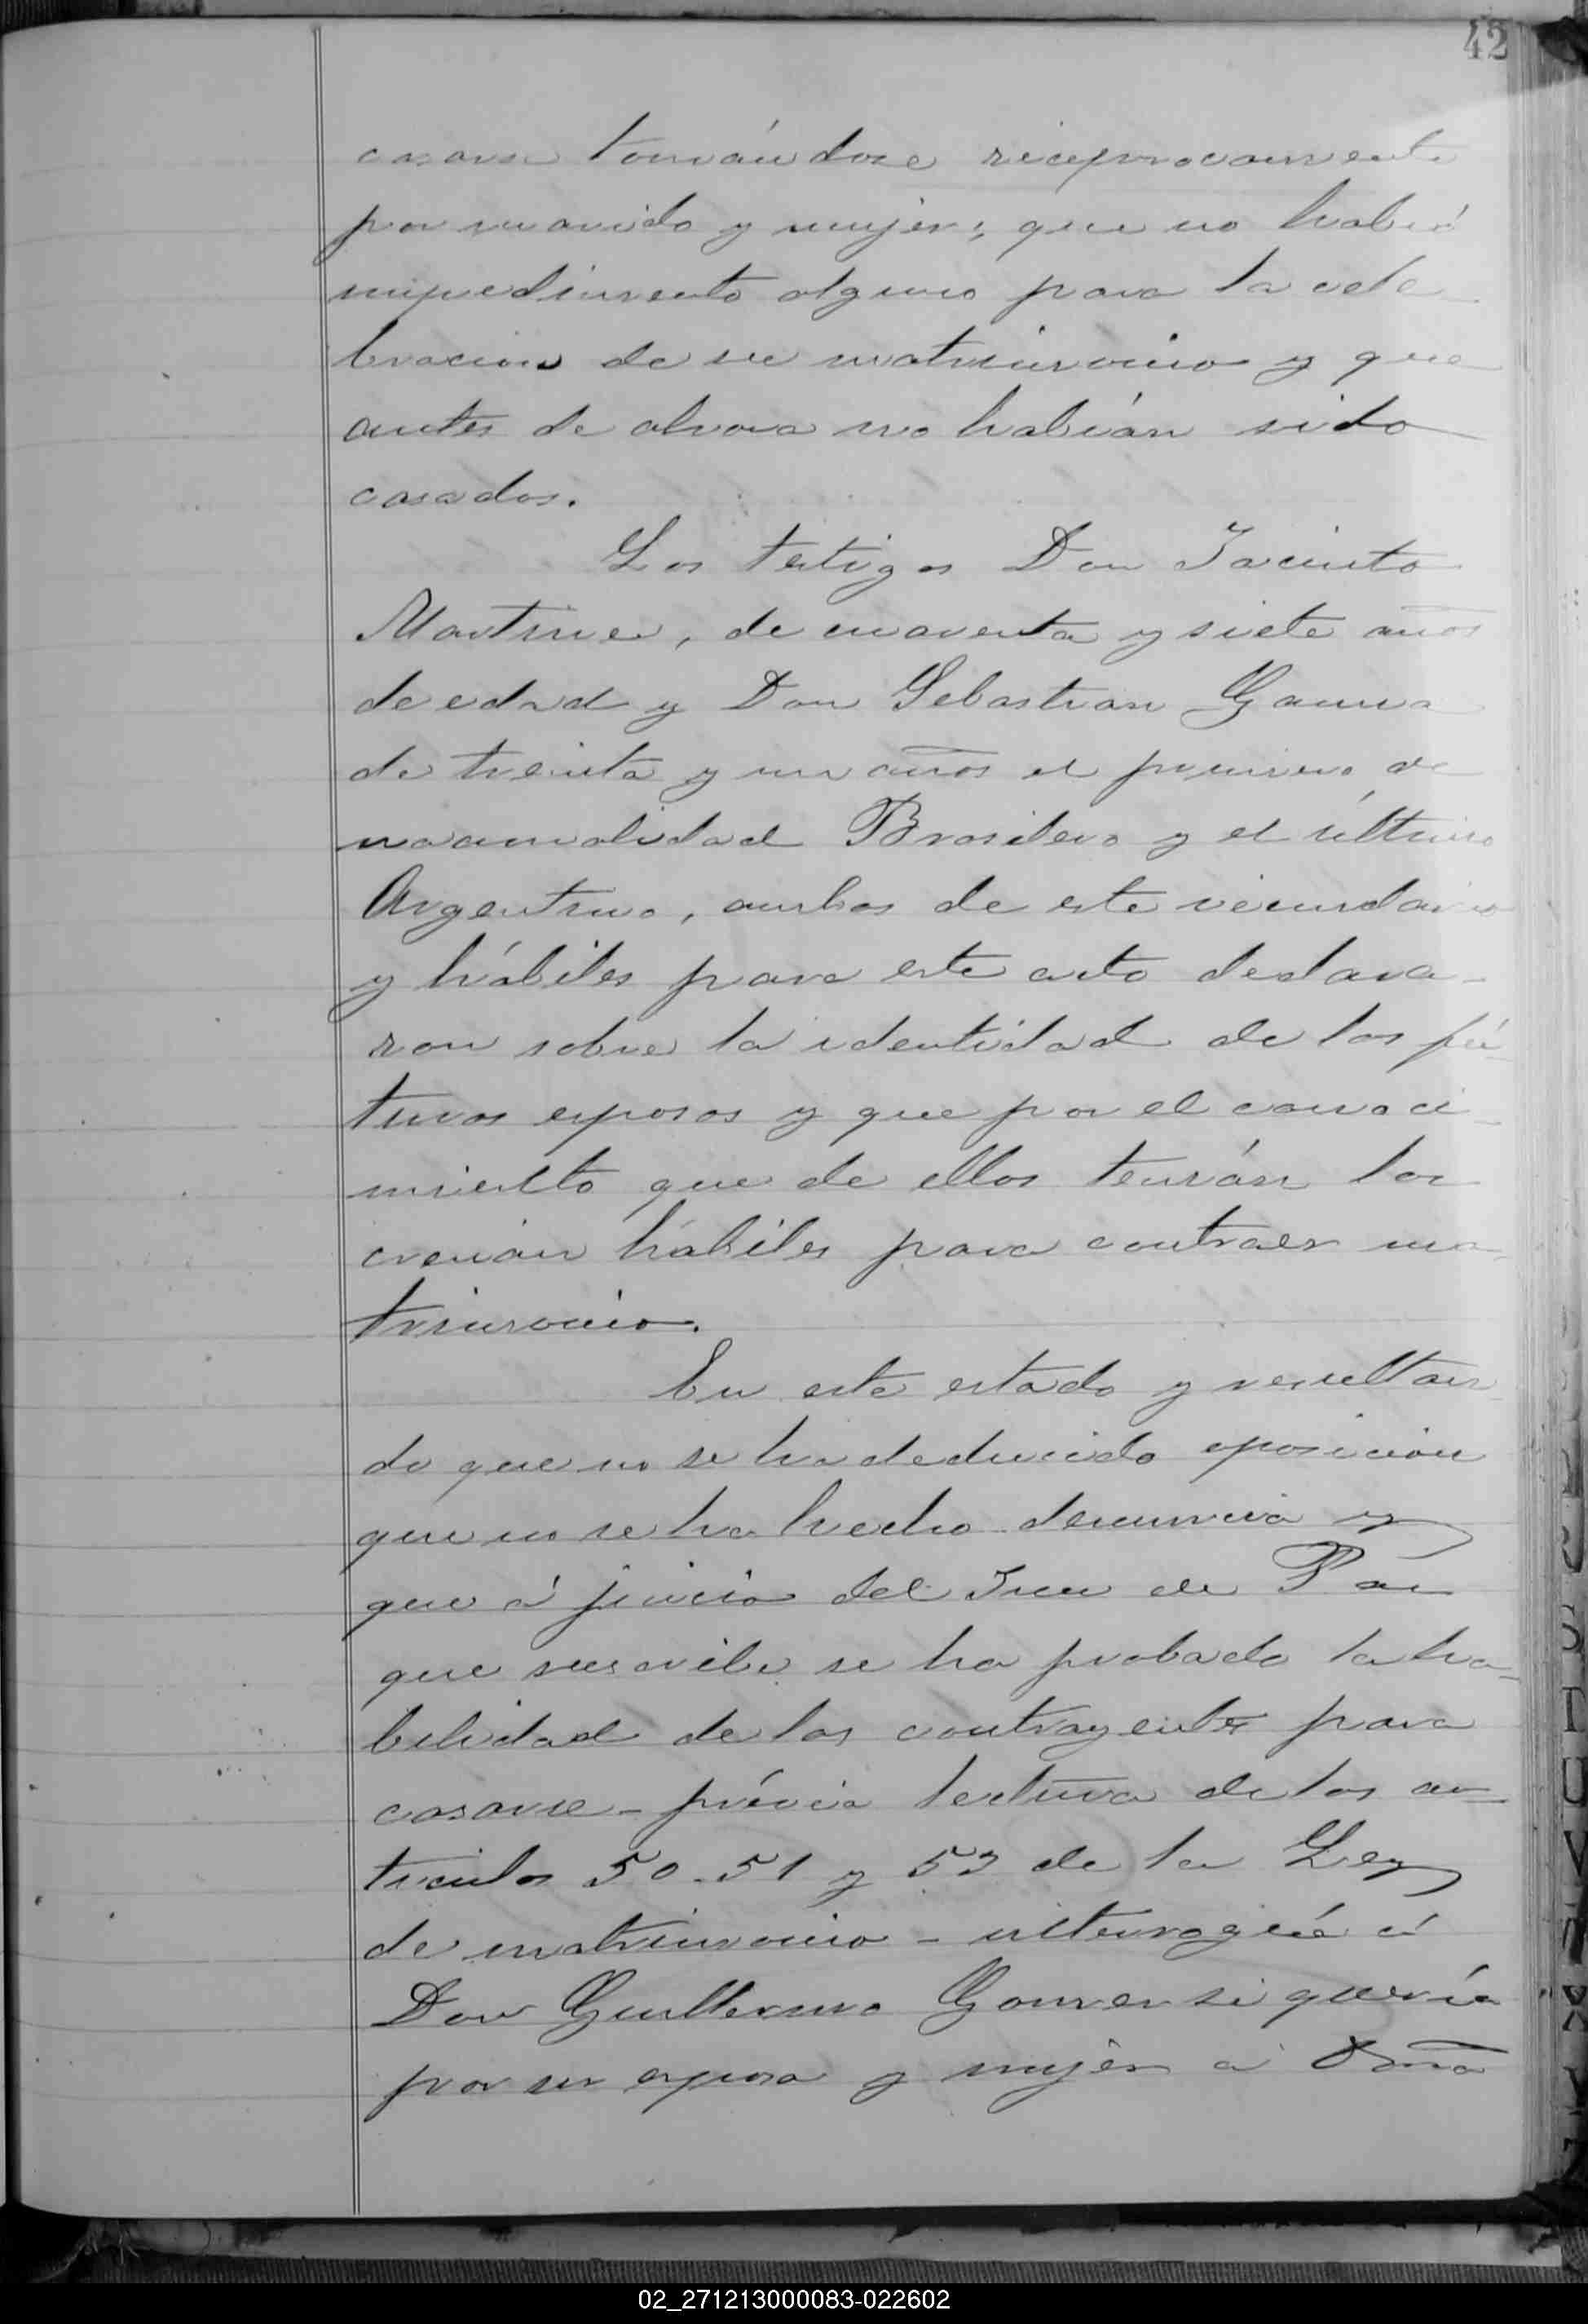 42
casarse tomándose reciprocamente
por marido y mujer; que no había
impedimento alguno para la cele
bracion de su matrimonio y que
antes de ahora no habían sido
casados.
Los testigos Don Jacinto
Martinez, de cuarenta y siete años
de edad y Don Sebastian Gauna
de treinta y un años el primero de
nacionalidad Brasilero y el último
Argentino, ambos de este vecindario
y hábiles para este acto declara-
ron sobre la identidad de los fú
turos esposos y que por el conoci-
miento que de ellos tenían los
creían hábiles para contraer ma-
trimonio.
En este estado y resultan
do que no se ha deducido oposicion
que no se ha hecho denuncia y
que á juicio del Juez de Paz
que suscribe se ha probado la ha-
bilidad de los contrayentes para
casarse - prévia lectura de los ar-
ticulos 50-51 y 53 de la Ley
de matrimonio - interrogué á
Don Guillermo Gomez si quería
por su esposa y mujer á Doña
S
T
U
V
X
02_271213000083-022602